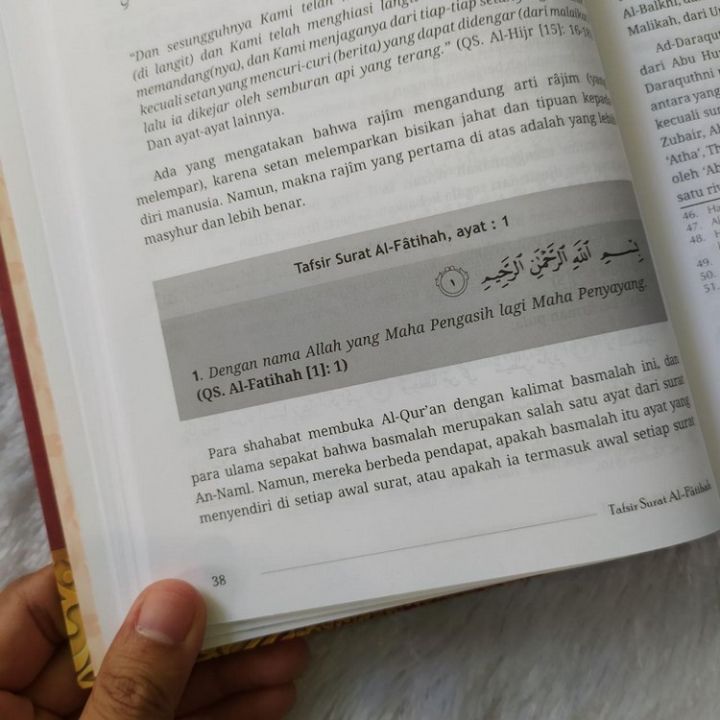 "Dan sesungguhnya Kami telah
(di langit) dan Kami telah menghiasi
memandang(nya), dan Kami menjaganya dari tiap-tiap
kecuali setan yang mencuri-curi (berita) yang dapat didengar (dari
lalu ia dikejar oleh semburan api yang terang." (QS. Al-Hijr [15]: 16-18)
Dan ayat-ayat lainnya.
Ada yang mengatakan bahwa rajîm mengandung arti râjim (yang
melempar), karena setan melemparkan bisikan jahat dan tipuan kepada
diri manusia. Namun, makna rajîm yang pertama di atas adalah yang lebih
masyhur dan lebih benar.
Tafsir Surat Al-Fâtihah, ayat : 1
بِسْمِ اللَّهِ الرَّحْمَٰنِ الرَّحِيمِ ١
1. Dengan nama Allah yang Maha Pengasih lagi Maha Penyayang.
(QS. Al-Fatihah [1]: 1)
Para shahabat membuka Al-Qur'an dengan kalimat basmalah ini, dan
para ulama sepakat bahwa basmalah merupakan salah satu ayat dari surat
An-Naml. Namun, mereka berbeda pendapat, apakah basmalah itu ayat yang
menyendiri di setiap awal surat, atau apakah ia termasuk awal setiap surat
Tafsir Surat Al-Fâtihah
38
Al-Balkhi,
Malikah, dari
Ad-Daraqu
dari Abu
Daraquthni
antara yang
kecuali
Zubair,
'Atha',
oleh
satu
46.
47.
48.
49.
50.
51.